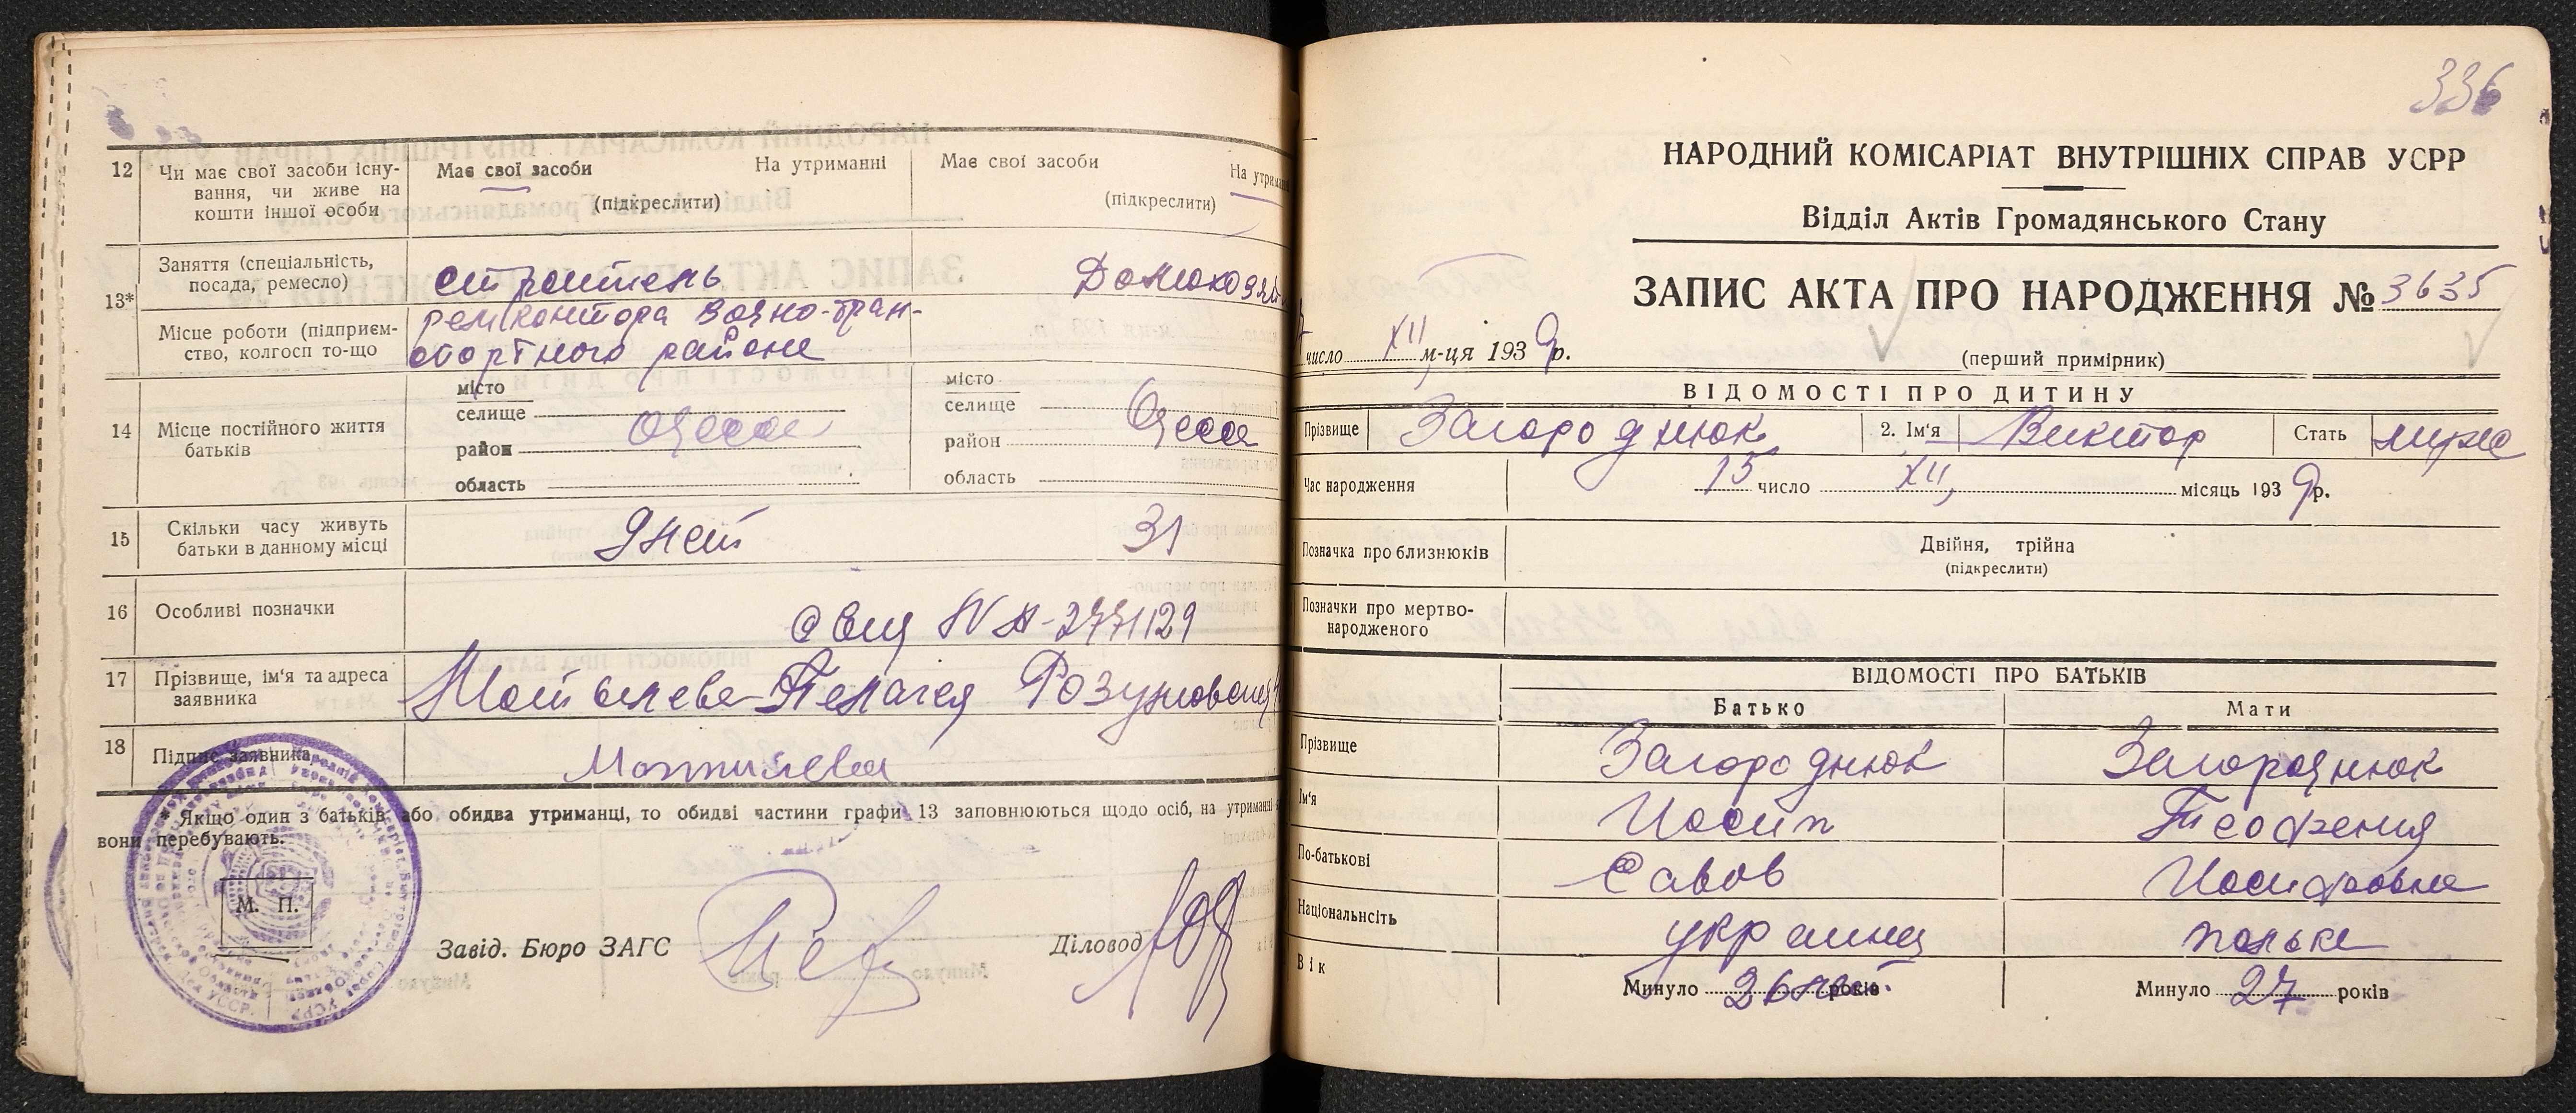 12 Чи має свої засоби існу-
вання, чи живе на
кошти іншої особи
Має свої засоби На утриманні
(підкреслити)
Має свої засоби На утриман
(підкреслити)
13*
Заняття (спеціальність,
посада, ремесло)
строитель Домохозяй
Місце роботи (підприєм-
ство, колгосп то-що
ремконтора Воєно-тран-
спортного района
14 Місце постійного життя
батьків
місто
селище
район Одесса
область
місто
селище
район Одесса
область
15 Скільки часу живуть
батьки в данному місці
9 лет 31
16 Особливі позначки
17 Прізвище, ім'я та адреса
заявника
Пелагея
18 Підпис заявника
* Якщо один з батьків або обидва утриманці, то обидві частини графи 13 заповнюються щодо осіб, на утриманні
вони перебувають.
М. П.
Завід. Бюро ЗАГС Діловод
336
НАРОДНИЙ КОМІСАРІАТ ВНУТРІШНІХ СПРАВ УСРР
Відділ Актів Громадянського Стану
ЗАПИС АКТА ПРО НАРОДЖЕННЯ № 3635
число XII м-ця 1939 р.
(перший примірник)
ВІДОМОСТІ ПРО ДИТИНУ
Прізвище Загороднюк 2. Ім'я Виктор Стать муже
Час народження 15 число XII, місяць 1939 р.
Позначка про близнюків Двійня, трійна
(підкреслити)
Позначки про мертво-
народженого
ВІДОМОСТІ ПРО БАТЬКІВ
Батько Мати
Прізвище Загороднюк Загороднюк
Ім'я Иосип Теофзения
По-батькові Савов Иосифовна
Національнсіть украинец полька
Вік Минуло 26 лет. років Минуло 27 років